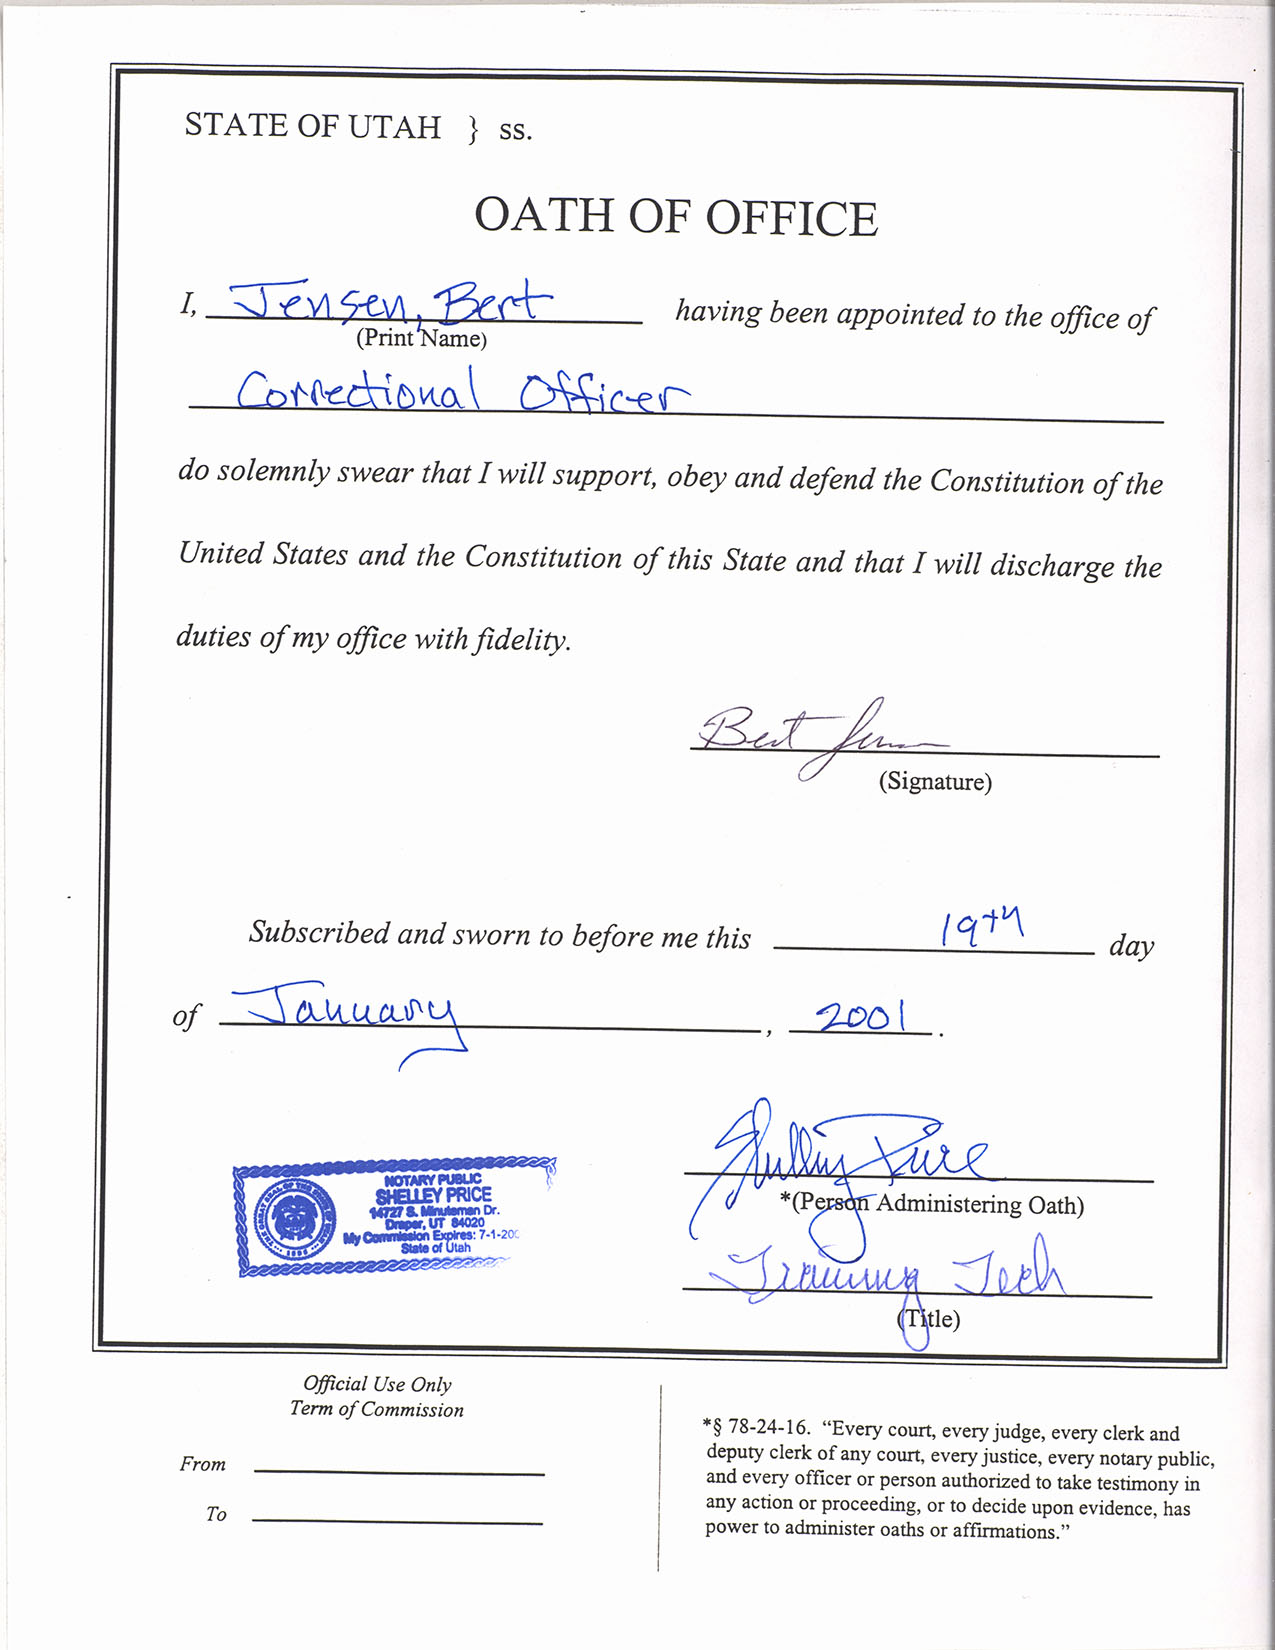 STATE OF UTAH } ss.
OATH OF OFFICE
I, Jensen, Bert having been appointed to the office of
(Print Name)
Correctional Officer
do solemnly swear that I will support, obey and defend the Constitution of the
United States and the Constitution of this State and that I will discharge the
duties of my office with fidelity.
Bert Jensen
(Signature)
Subscribed and sworn to before me this 19th day
of January, 2001.
Shelley Price
*(Person Administering Oath)
NOTARY PUBLIC
SHELLEY PRICE
14727 S. Minuteman Dr.
Draper, UT 84020
My Commission Expires: 7-1-200
State of Utah
Training Tech
(Title)
Official Use Only
Term of Commission
From
To
*§ 78-24-16. “Every court, every judge, every clerk and
deputy clerk of any court, every justice, every notary public,
and every officer or person authorized to take testimony in
any action or proceeding, or to decide upon evidence, has
power to administer oaths or affirmations.”